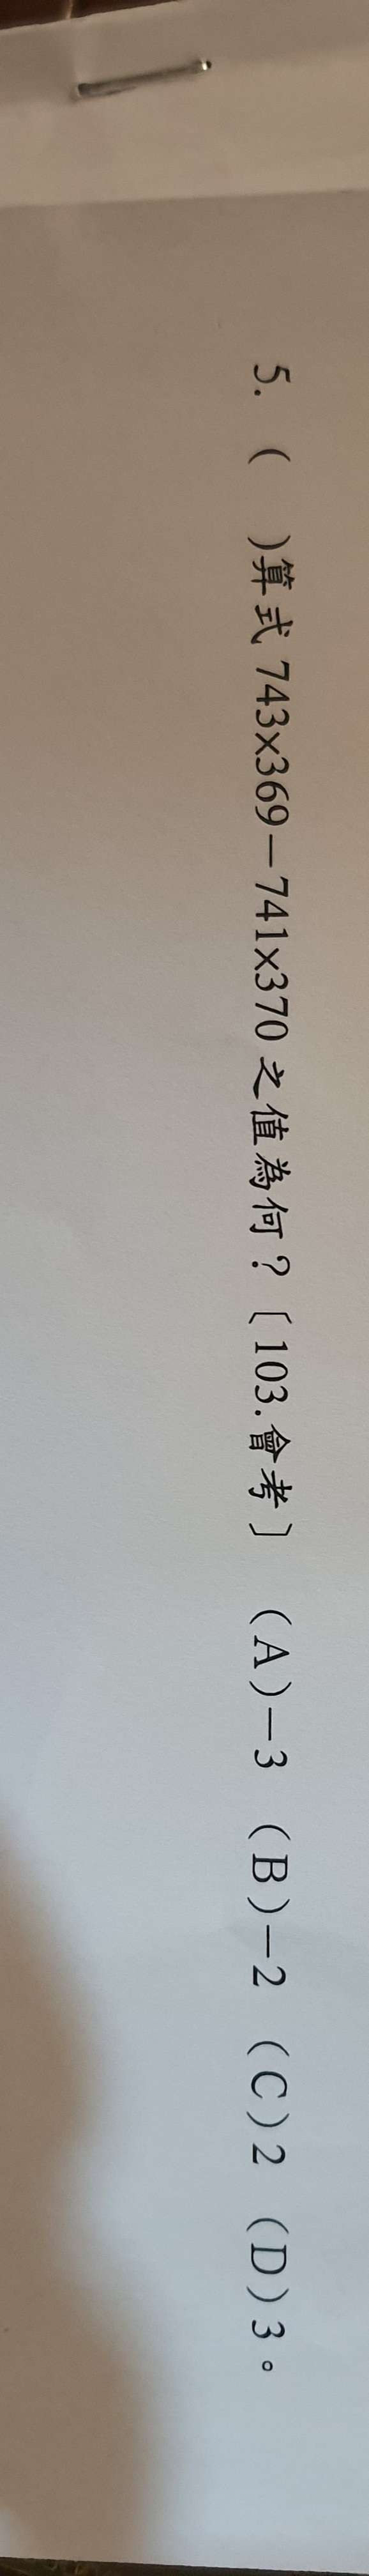 5. (　)算式 743x369－741x370 之值為何？〔103.會考〕 (A)－3 (B)－2 (C)2 (D)3。